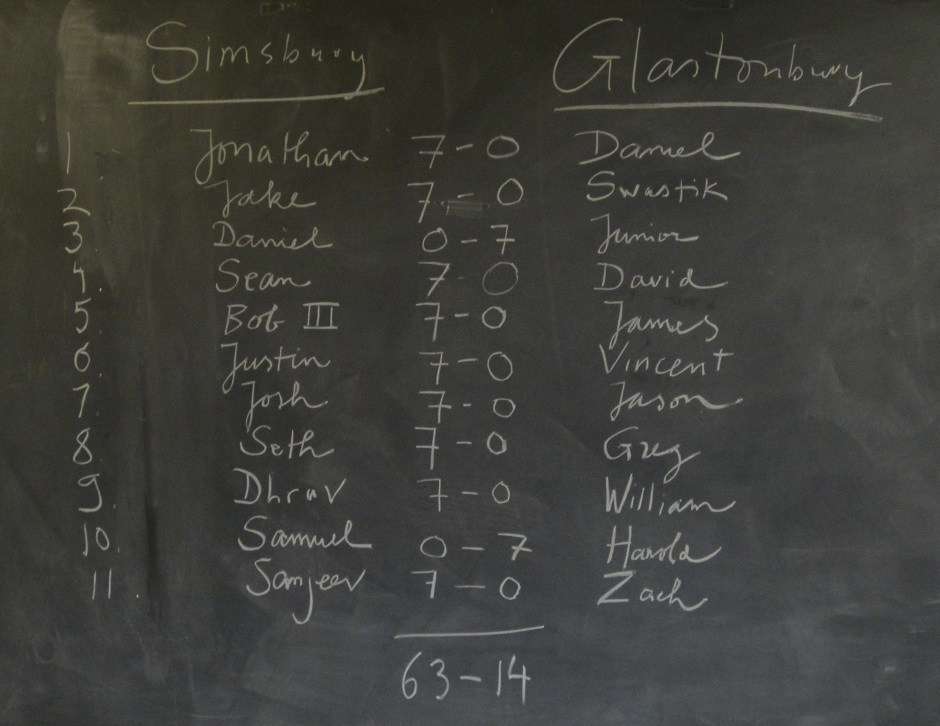 Simsbury Glastonbury
1 Jonathan 7-0 Daniel
2 Jake 7-0 Swastik
3. Daniel 0-7 Junior
4. Sean 7-0 David
5. Bob III 7-0 James
6. Justin 7-0 Vincent
7. Josh 7-0 Jason
8. Seth 7-0 Greg
9. Dhruv 7-0 William
10. Samuel 0-7 Harold
11. Sanjeev 7-0 Zach
63-14